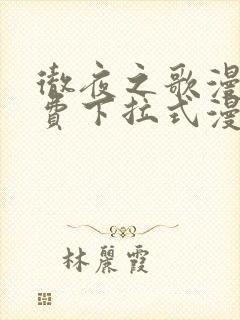 徹夜之歌漫
費下拉式漫
林麗霞